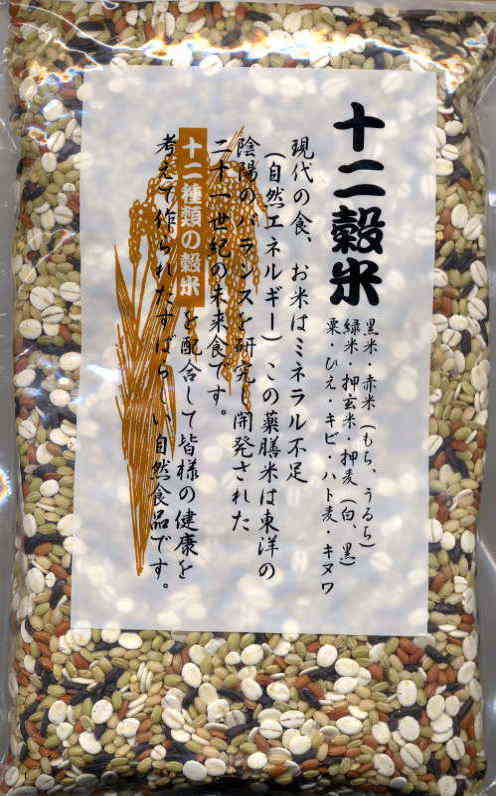 十二穀米
黒米・赤米（もち、うるち）
緑米・押玄米・押麦（白、黒）
粟・ひえ・キビ・ハト麦・キヌワ
現代の食、お米はミネラル不足
（自然エネルギー）この薬膳米は東洋の
陰陽のバランスを研究し開発された
二十一世紀の未来食です。
十二種類の穀米を配合して皆様の健康を
考えて作られたすばらしい自然食品です。